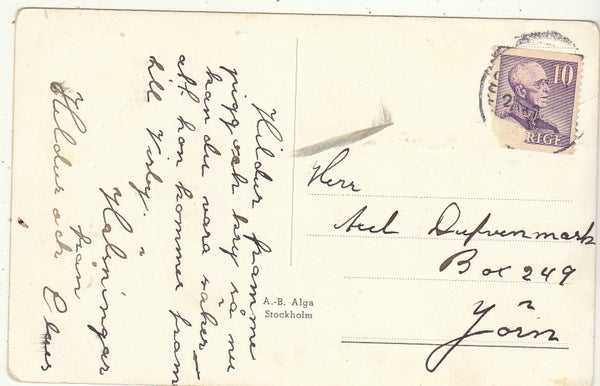 Hildur framme
pigg och kry så nu
kan du vara säker
att hon kommer fram
till Visby.
Hälsningar
från
Hildur och
A.-B. Alga
Stockholm
10
RIGE
Herr
Axel Dufvenmark
Box 249
Jörn